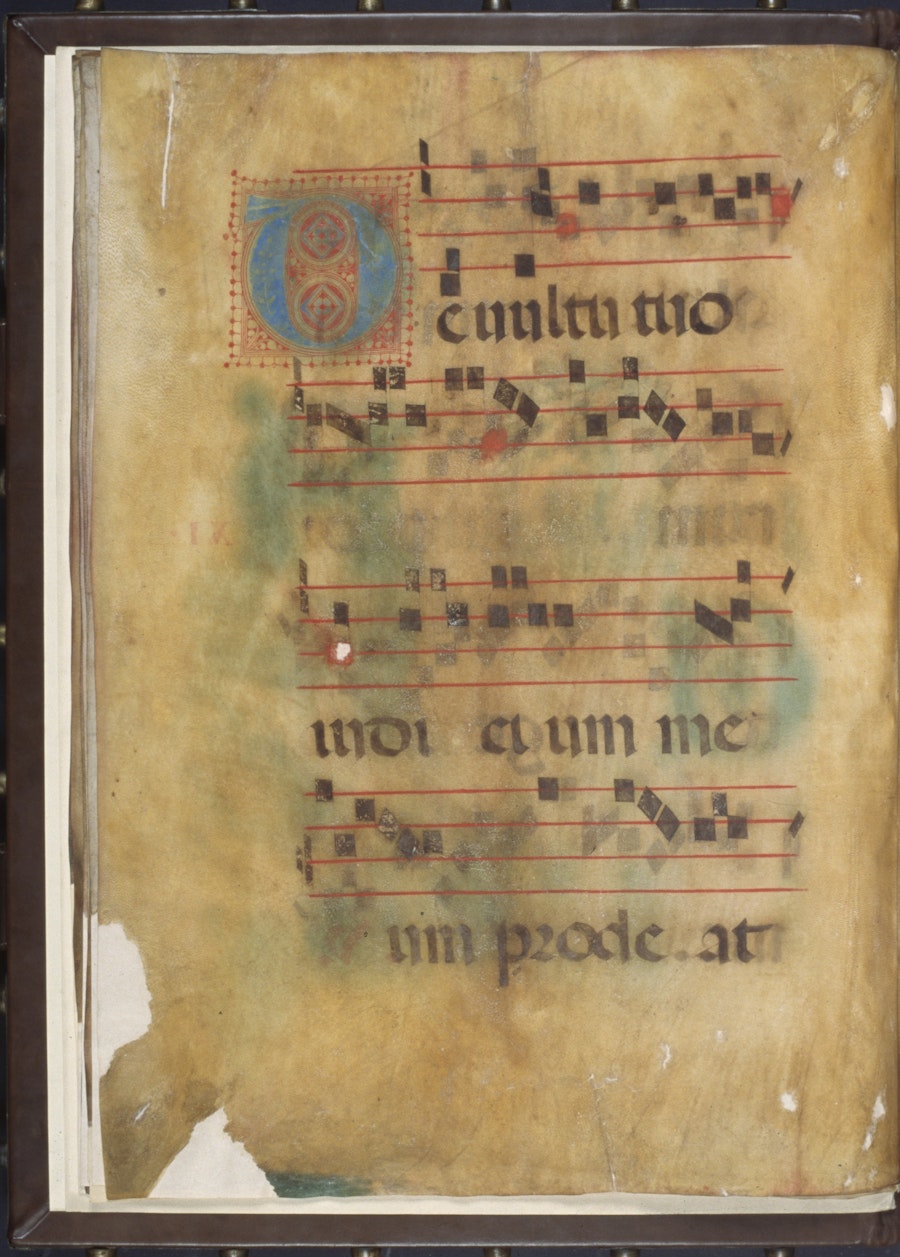 De uultu tuo
iudi ci um me
um prode at